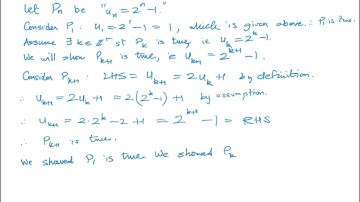 Let Pn be "uₙ = 2ⁿ - 1."
Consider P₁: u₁ = 2¹ - 1 = 1, which is given above. ∴ P₁ is True.
Assume ∃ k ∈ ℤ⁺ st Pₖ is true, ie uₖ = 2ᵏ - 1.
We will show Pₖ₊₁ is true, ie uₖ₊₁ = 2ᵏ⁺¹ - 1.
Consider Pₖ₊₁: LHS = uₖ₊₁ = 2uₖ + 1 by definition.
∴ uₖ₊₁ = 2uₖ + 1 = 2(2ᵏ - 1) + 1 by assumption.
∴ uₖ₊₁ = 2·2ᵏ - 2 + 1 = 2ᵏ⁺¹ - 1 = RHS
∴ Pₖ₊₁ is true.
We showed P₁ is true. We showed Pₖ